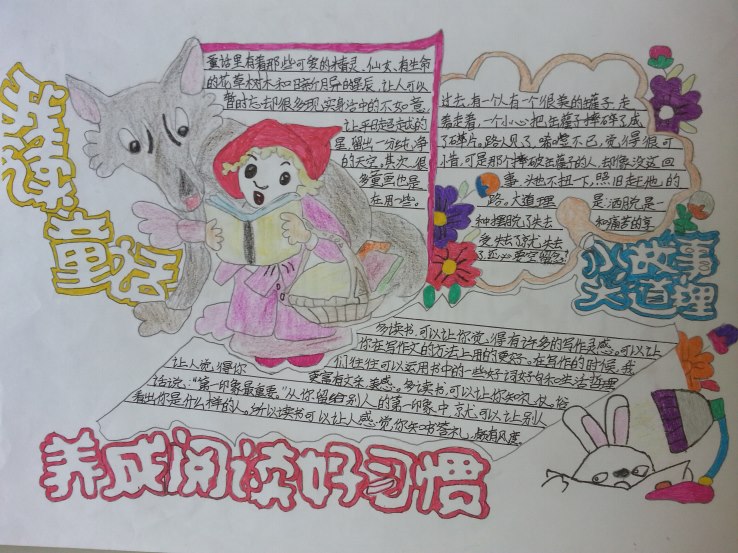 童话
童话里有着那些可爱的精灵、仙女、有生命
的花草树木和日新月异的星辰,让人可以
暂时忘却很多现实身活中的不如意,
让
星,留出一分纯净
的天空,其次,很
多童畫也是
在用一些。
过去,有一个人有一个很美的罐子,走
着走着,一个小心把缶罐子摔碎了成
了碎片。路人见了,嘘嘘不已,觉得很可
惜,可是那个摔破缶罐子的人,却像没这回
事,头也不扭一下,照旧赶他的
路。大道理 是:洒脱是一
种摆脱了失去 和痛苦的享
受,失去了就失去
了,
小故事
大道理
多读书,可以让你觉得有许多的写作灵感。可以让
你在写作文的方法上用的更好。在写作的时候,我
们往往可以运用书中的一些好词好句和生活哲理
让人觉得你 更富有文采、美感。多读书,可以让你知
话说,“第一印象最重要。”从你留给别人的第一印象中,就可以让别人
看出你是什么样的人。所以读书可以让人感觉你知书答礼,颇有风度
养成阅读好习惯